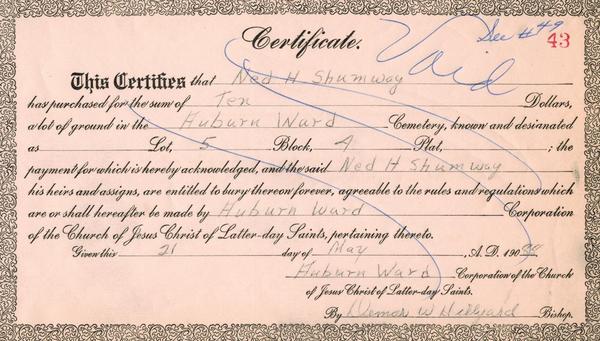 Certificate.
Void
See #49
43
This Certifies that Ned H Shumway
has purchased for the sum of Ten Dollars,
a lot of ground in the Auburn Ward Cemetery, known and designated
as Lot, 5 Block, 4 Plat, ; the
payment for which is hereby acknowledged, and the said Ned H Shumway
his heirs and assigns, are entitled to bury thereon forever, agreeable to the rules and regulations which
are or shall hereafter be made by Auburn Ward Corporation
of the Church of Jesus Christ of Latter-day Saints, pertaining thereto.
Given this 21 day of May , A. D. 190
Auburn Ward Corporation of the Church
of Jesus Christ of Latter-day Saints.
By W Hillyard Bishop.